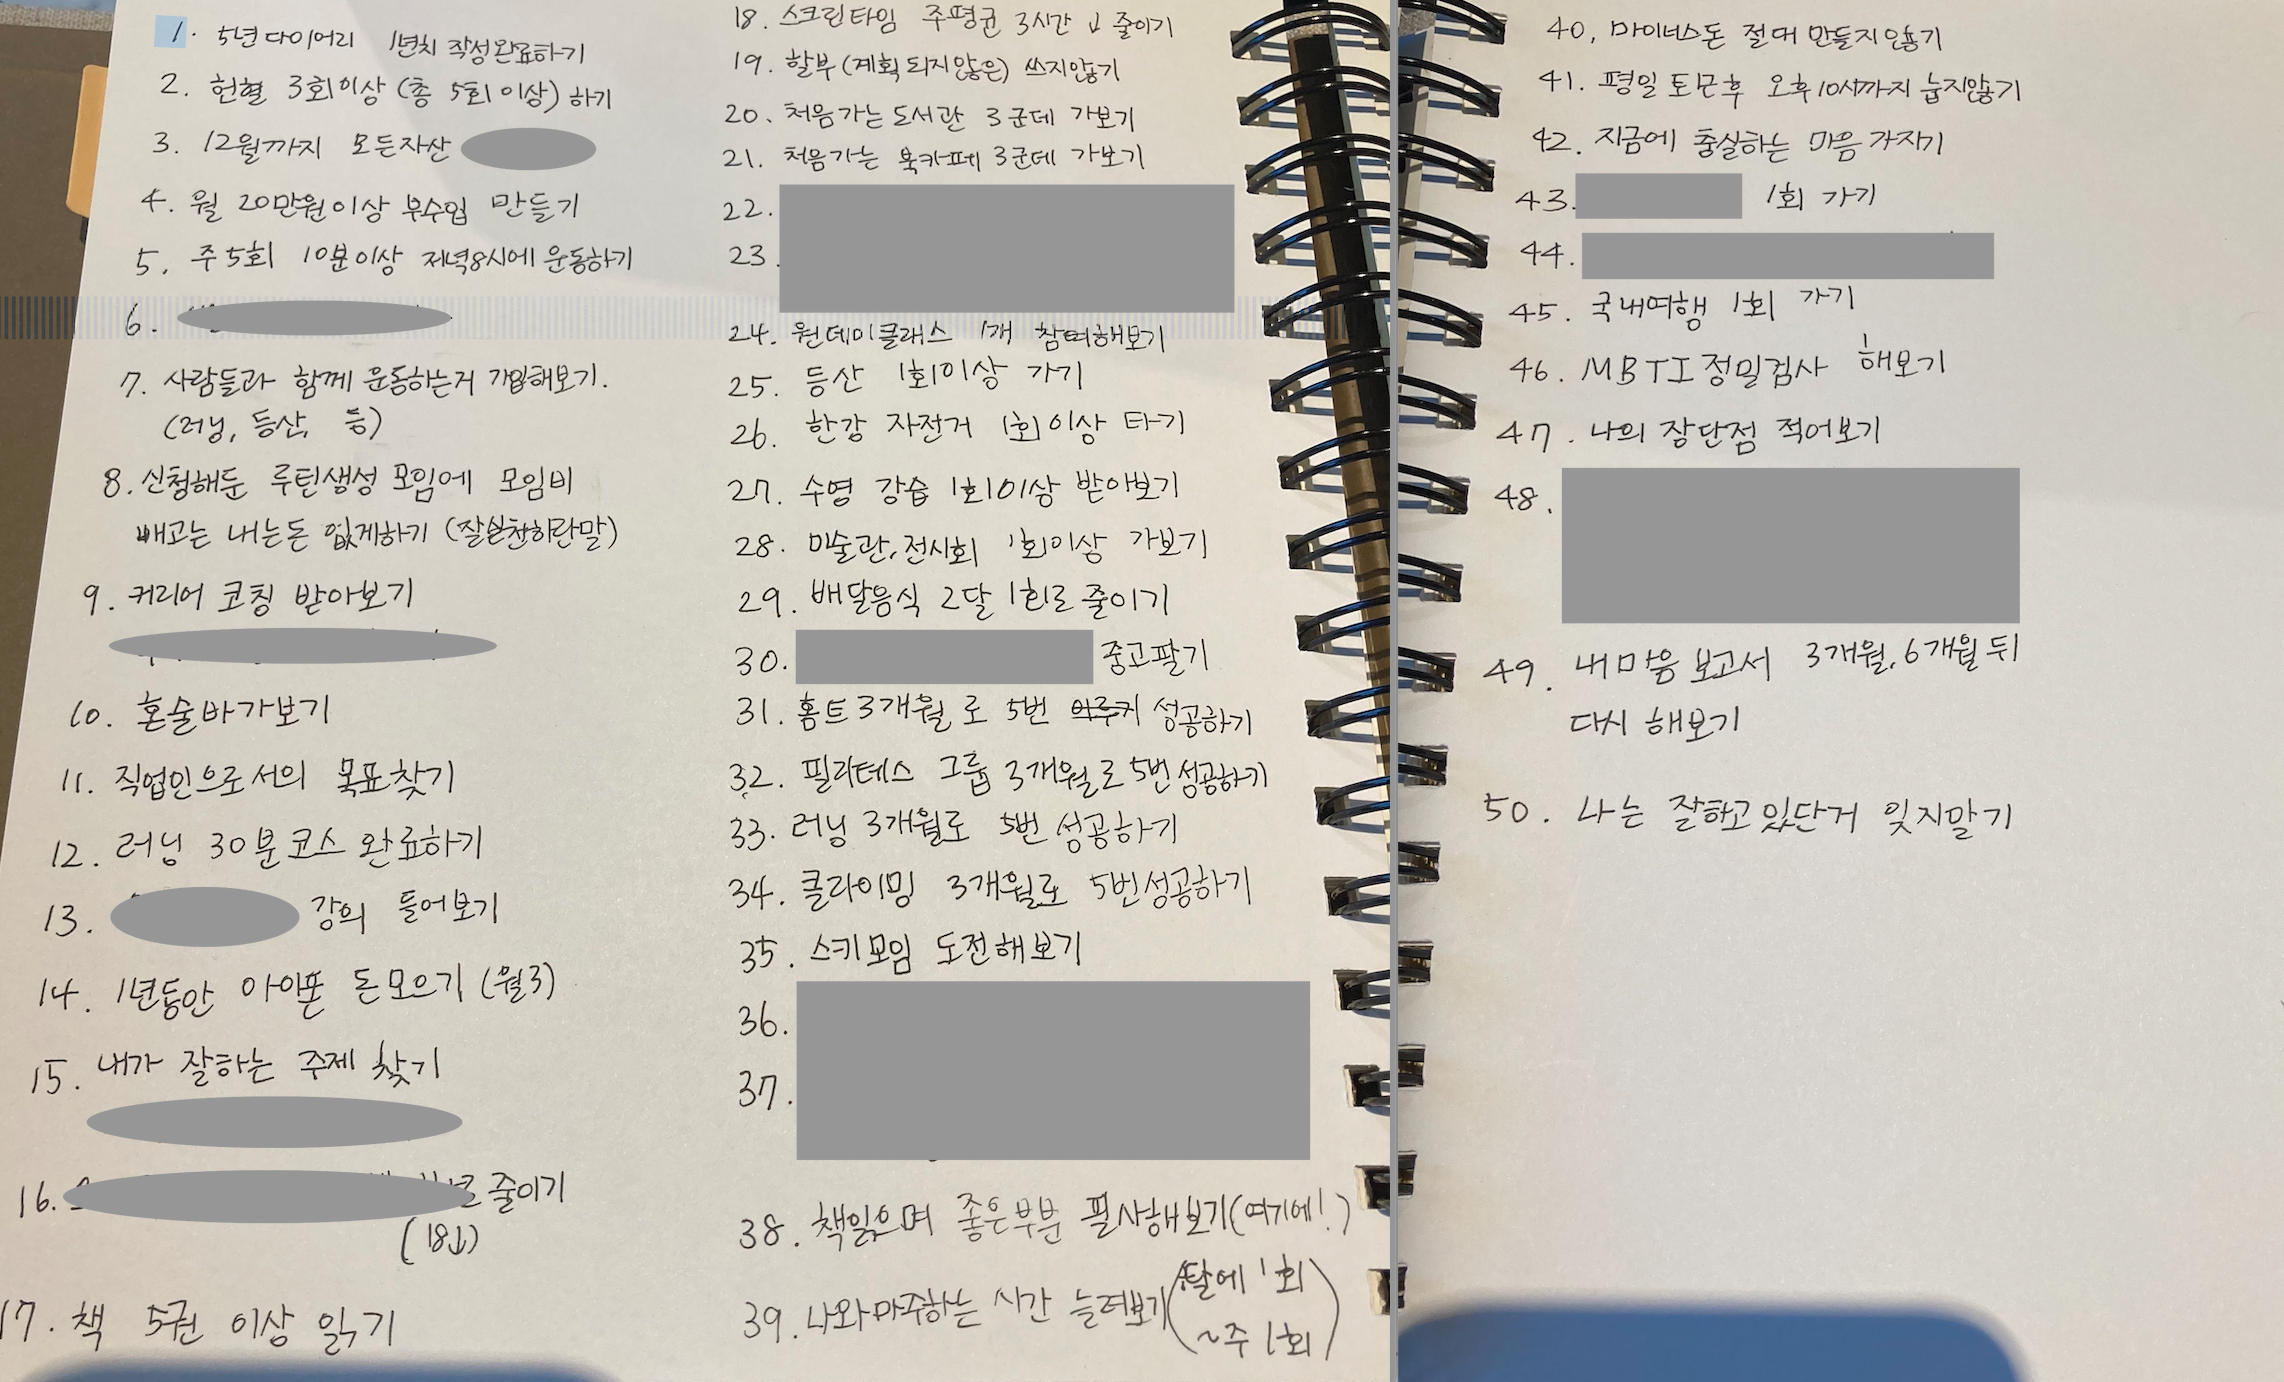 1. 5년다이어리 1년치 작성완료하기
2. 헌혈 3회이상 (총 5회 이상) 하기
3. 12월까지 모든자산
4. 월 20만원이상 부수입 만들기
5. 주5회 10분이상 저녁8시에 운동하기
6.
7. 사람들과 함께 운동하는거 가입해보기.
(러닝, 등산, 등)
8. 신청해둔 루틴생성 모임에 모임비
빼고는 내는돈 없게하기 (잘실천하란말)
9. 커리어 코칭 받아보기
10. 혼술바가보기
11. 직업인으로서의 목표찾기
12. 러닝 30분코스 완료하기
13. 강의 들어보기
14. 1년동안 아이폰 돈모으기 (월3)
15. 내가 잘하는 주제 찾기
16. 줄이기
(18↓)
17. 책 5권 이상 읽기
18. 스크린타임 주평균 3시간 ↓ 줄이기
19. 할부(계획되지않은) 쓰지않기
20. 처음가는 도서관 3군데 가보기
21. 처음가는 북카페 3군데 가보기
22.
23.
24. 원데이클래스 1개 참여해보기
25. 등산 1회이상 가기
26. 한강 자전거 1회이상 타기
27. 수영 강습 1회이상 받아보기
28. 미술관, 전시회 1회이상 가보기
29. 배달음식 2달 1회로 줄이기
30. 중고팔기
31. 홈트3개월로 5번 성공하기
32. 필라테스 그룹 3개월로 5번성공하기
33. 러닝 3개월로 5번 성공하기
34. 클라이밍 3개월로 5번성공하기
35. 스키모임 도전해보기
36.
37.
38. 책읽으며 좋은부분 필사해보기(여기에!)
39. 나와마주하는 시간 늘려보기(달에 1회
~주 1회)
40. 마이너스돈 절대 만들지않기
41. 평일 퇴근후 오후10시까지 눕지않기
42. 지금에 충실하는 마음 가지기
43. 1회 가기
44.
45. 국내여행 1회 가기
46. MBTI정밀검사 해보기
47. 나의 장단점 적어보기
48.
49. 내마음보고서 3개월, 6개월뒤
다시 해보기
50. 나는 잘하고있단거 잊지말기